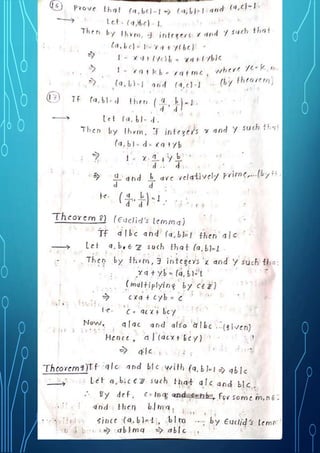 (16) Prove that (a,bc)=1 ⇒ (a,b)=1 and (a,c)=1.
→ Let (a,bc)=1.
Then by thvm, ∃ integers x and y such that
(a,bc)=1=xa+y(bc)
⇒ 1 = xa+(yc)b = xa+(yb)c
⇒ 1 = xa+kb = xa+mc, where yc=k,
⇒ (a,b)=1 and (a,c)=1 (by theorem)
(17) If (a,b)=d then (a/d, b/d)=1.
→ Let (a,b)=d.
Then by thvm, ∃ integers x and y such that
(a,b)=d=xa+yb
⇒ 1 = x a/d + y b/d
⇒ a/d and b/d are relatively prime
ie. (a/d, b/d)=1.
Theorem 8) (Euclid's lemma)
If a|bc and (a,b)=1 then a|c
→ Let a,b,c∈Z such that (a,b)=1
Then by thvm, ∃ integers x and y such
xa+yb=(a,b)=1
(multiplying by c∈Z)
⇒ cxa+cyb=c
ie. c=acx+bcy
Now, a|ac and also a|bc (given)
Hence, a|(acx+bcy)
⇒ a|c.
Theorem 9) If a|c and b|c with (a,b)=1 ⇒ ab|c
→ Let a,b,c∈Z such that a|c and b|c.
∴ By def. c=ma and c=nb, for some m,n∈
and then b|ma
since (a,b)=1, b|m by Euclid's
⇒ ab|ma ⇒ ab|c.